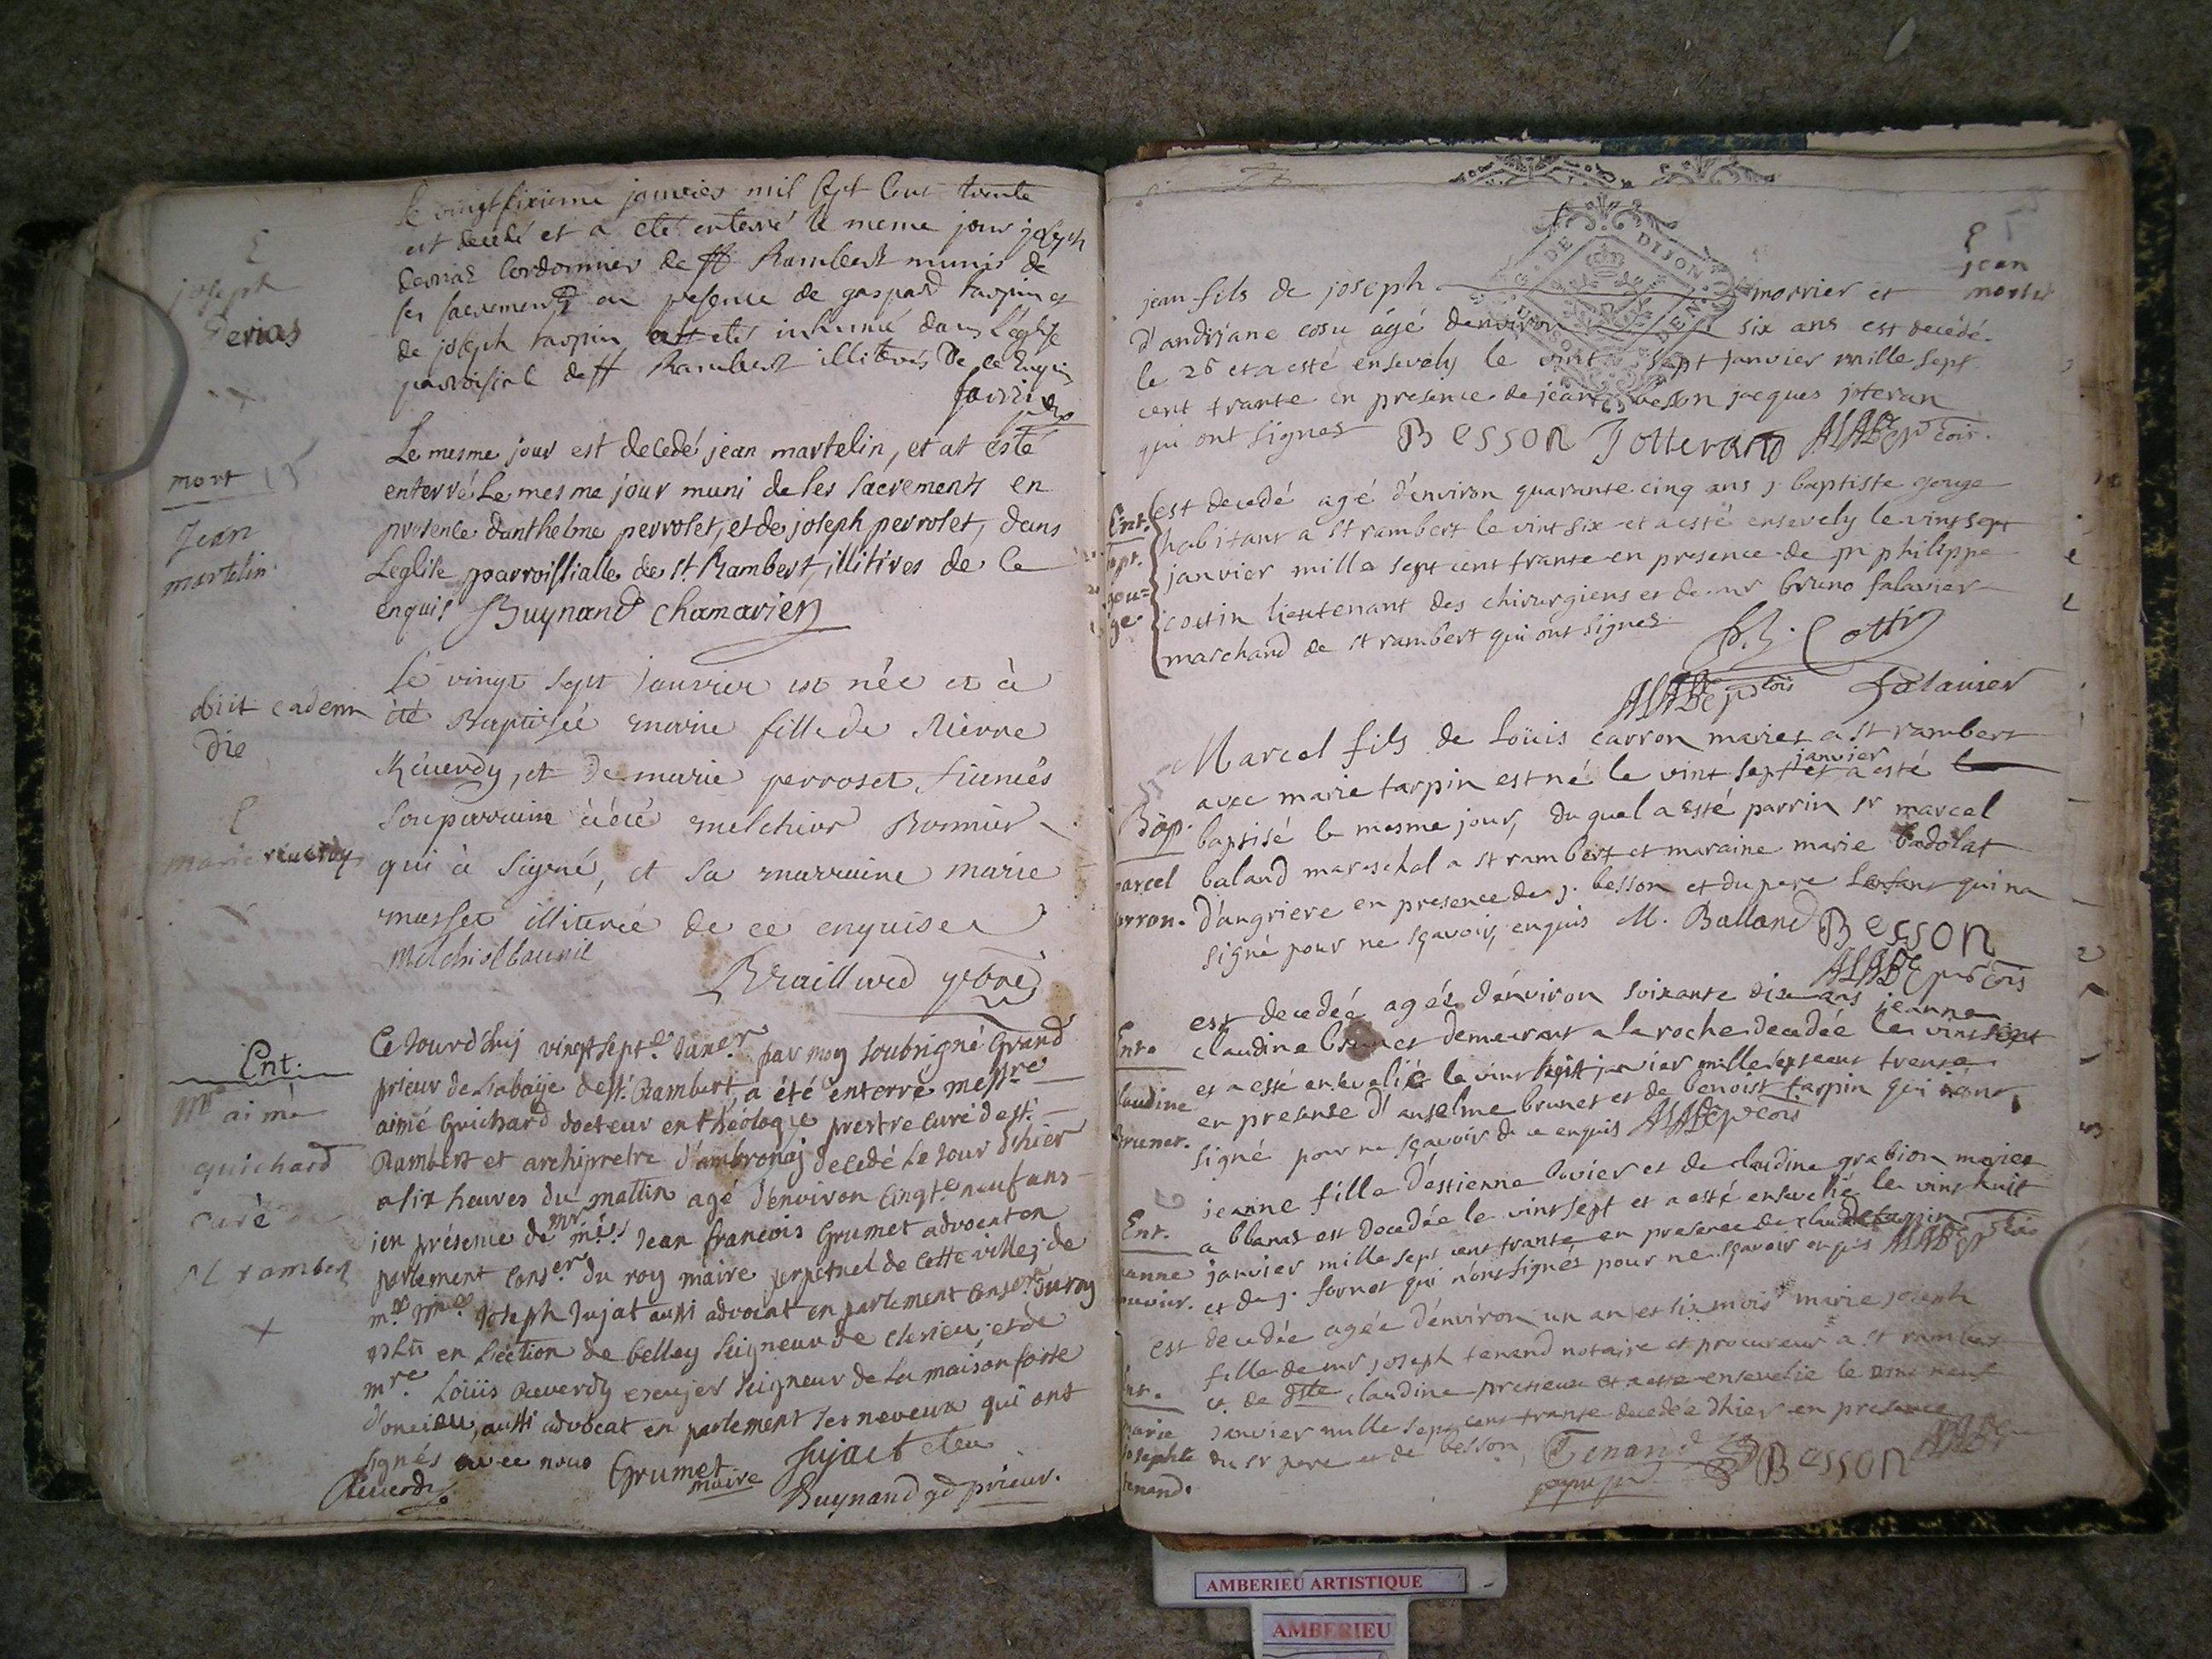 E
joseph
Derias
le vingt sixieme janvier mil sept cent trente
est decedé et a eté enterré le meme jour joseph
derias Cordonnier de st Rambert munis de
ses sacrements en presence de gaspard tarpin et
de joseph tarpin inhumé dans L'eglise
parroisial de st Rambert illiterés De ce Enquis
mort
Jean
martelin
Le mesme jour est decedé jean martelin, et at esté
enterré Le mesme jour muni de ses sacrements en
presence danthelme perroset, et de joseph perroset, dans
Leglise parroissialle de st. Rambert, illitires de ce
enquis Buynand Chamarier
obiit eadem
die
E
marie reverdy
Le vingt sept Janvier est née et à
été Baptisée marie fille de Pierre
Reverdy, et De marie perroset fiancés
Son parrain à été melchior Bonnier
qui à signé, et sa marraine marie
masset illiterée de ce enquise
Braillard
Ent.
Mre aimé
guichard
curé
st rambert
Cejourdhuj vingt sept.e Janer. par moy soubsigné Grand
prieur de Labaÿe de st. Rambert, a été enterré messre
aimé Guichard docteur en théologie prestre curé de st.
Rambert et archiprestre d'ambronaj decedé Le jour d'hier
a six heures du mattin agé d'environ Cinqte. neuf ans
en présence de mr Jean françois Grumet advocat en
parlement Conser. du roy maire perpetuel de cette ville; de
Joseph Jujat aussi advocat en parlement Conser. du roy
eslu en Leection de belley seigneur de Clerieu; et de
mre. Loüis Reverdy escujer seigneur de La maison forte
d'oncieu, aussi advocat en parlement ses neveux qui ont
signés avec nous Grumet Jujat eleu
Reverdy maire Buynand gd prieur.
DE DIJON
E
jean
morier
jean fils de joseph morrier et
d'andrÿane cosu âgé denviron six ans est decédé
le 26 et a esté ensevely le vint sept janvier mille sept
cent trante en presence de jean besson jacques joteran
qui ont signes Besson Jotterand
Ent.
bapt.
gou=
ge
est decedé agé d'environ quarante cinq ans j. baptiste gouge
habitant a st rambert le vint six et a esté ensevely le vint sept
janvier mille sept cent trante en presence de philippe
cottin lieutenant des chirurgiens et de mr bruno falavier
marchand de st rambert qui ont signes Cottin
falavier
Bap.
marcel
carron.
Marcel fils de Loüis carron mariés a st rambert
avec marie tarpin est né le vint sept janvier et a esté
baptisé le mesme jour, du quel a esté parrin sr marcel
baland mareschal a st rambert et maraine marie badolat
d'angriere en presence de j. besson et du pere qui na
signé pour ne sçavoir, enquis M. Balland Besson
Ent.
claudine
brunet.
est decedée agée d'environ soixante dix ans jeanne
claudine brunet demeurant a la roche decedée le vint sept
et a esté ensevelie le vint huit janvier mille sept cent trente
en presense d'anselme brunet et de benoist tarpin qui nont
signé pour ne sçavoir de ce enquis
Ent.
jeanne
bouvier.
jeanne fille d'estienne bouvier et de claudine grabion maries
a blanas est decedée le vint sept et a esté ensevelie le vint huit
janvier mille sept cent trante en presence de claude tarpin
et de j. fornet qui n'ont signés pour ne sçavoir enquis
Ent.
marie
josephte
tenand.
est decedée agée d'environ un an et six mois marie joseph
fille de mr joseph tenand notaire et procureur a st rambert
et de dlle claudine et a esté ensevelie le vint neuf
janvier mille sept cent trante decedée d'hier en presence
du sr pere et de besson Tenand Besson
AMBERIEU ARTISTIQUE
AMBERIEU